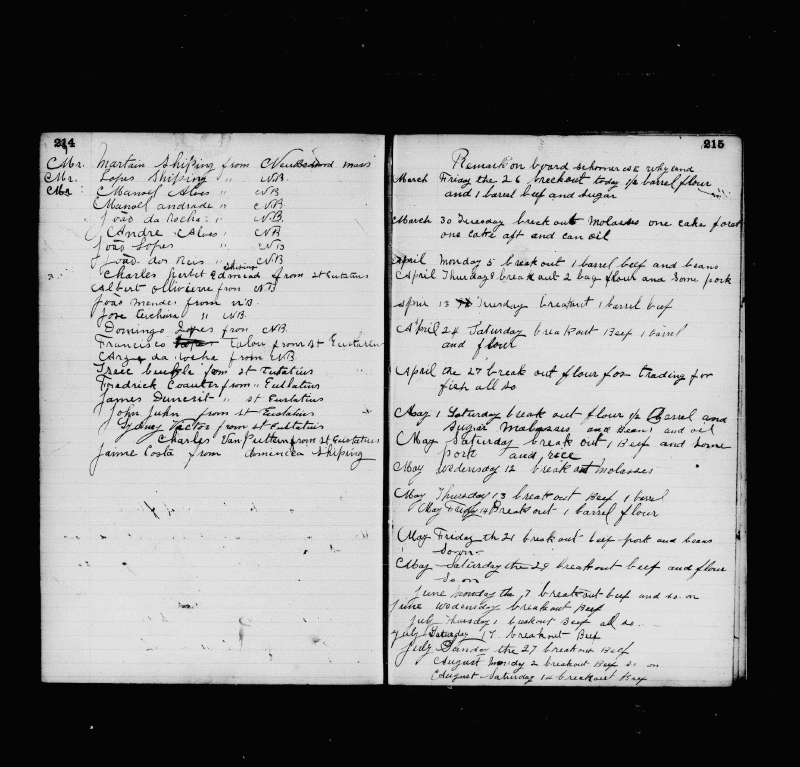 214
Mr. Martain Shiping from Newbedford mass
Mr. Lopes Shiping " N.B.
Mr. Manoel Alves " NB
Manoel andrade " NB
João da Rocha " N.B
Andre Alves " NB
João Lopes " NB
João dos Reis " NB
Charles from St Eustatius
Shiping
Albert from NB
João mendes from N.B.
Jose " NB.
Domingo Lopes from NB.
Francisco from St Eustatius
da Rocha from NB
from St Eustatius
Fredrick from " Eustatius
James " St Eustatius
John from St Eustatius
Sydney from St Eustatius
Charles Van Putten from St Eustatius
Jaime Costa from domenica Shiping
215
Remark on board schooner
March Friday the 26 breckout today 1/2 barrel flour
and 1 barrel beef and Sugar
March 30 Tuesday breck out Molasses one cake forst
one cake aft and can oil
April Monday 5 breakout 1 barrel beef and beans
April Thursday 8 break out 2 bag flour and Some pork
April 13 Tuesday breakout 1 barrel beef
April 24 Saturday breakout Beef 1 barrel
and flour
April the 27 break out flour for trading for
fish all so
May 1 Saturday break out flour 1/2 Barrel and
Sugar Molasses and Beans and oil
May Saturday break out 1 Beef and Some
pork and rice
May Wedensday 12 break out Molasses
May Thursday 13 break out Beef 1 barrel
May Friday 14 Break out 1 barrel flour
May Friday th 21 break out beef pork and beans
So on
May Saturday the 29 breakout beef and flour
So on
June Monday the 7 breakout beef and so on
June Wedensday breakout Beef
July Thursday 1 breakout Beef all so.
July Saturday 17 breakout Beef
July the 27 breakout Beef
August Monday 2 breakout Beef So on
August Saturday 14 breakout Beef